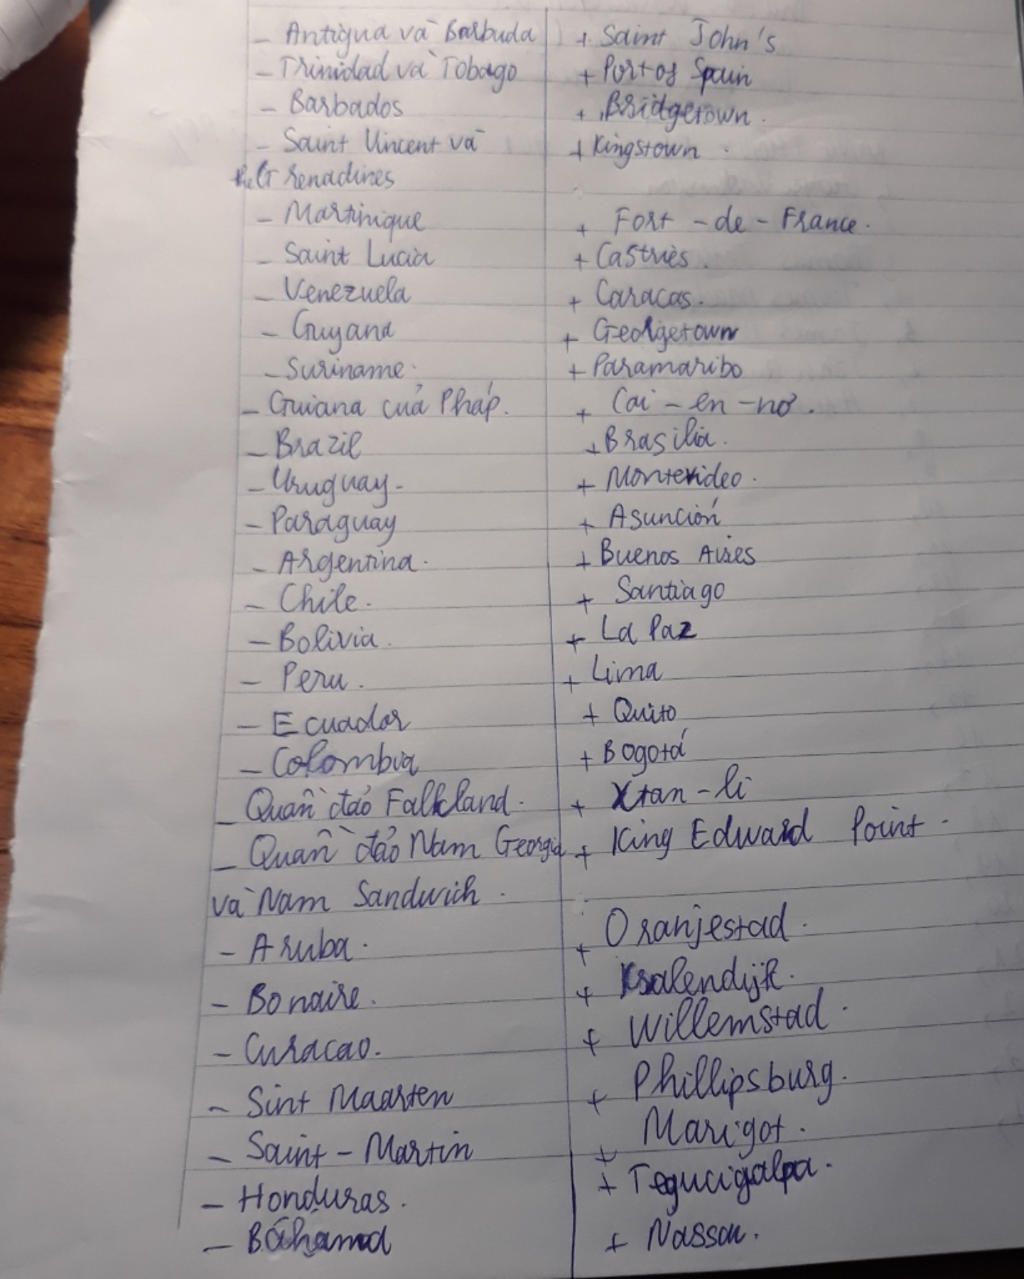 - Antigua và Barbuda + Saint John's
- Trinidad và Tobago + Port of Spain
- Barbados + Bridgetown.
- Saint Vincent và + Kingstown.
the Grenadines
- Martinique + Fort - de - France.
- Saint Lucia + Castries.
- Venezuela + Caracas.
- Guyana + Georgetown
- Suriname. + Paramaribo
- Guiana của Pháp. + Cai - en - nơ.
- Brazil + Brasilia.
- Uruguay - + Montevideo.
- Paraguay + Asunción
- Argentina. + Buenos Aires
- Chile. + Santiago
- Bolivia. + La Paz
- Peru. + Lima
- Ecuador + Quito
- Colombia + Bogotá
- Quần đảo Falkland. + Xtan - li
- Quần đảo Nam Georgia + King Edward Point.
và Nam Sandwich.
- Aruba. + Oranjestad.
- Bonaire. + Kralendijk.
- Curacao. + Willemstad.
- Sint Maarten + Phillipsburg.
- Saint - Martin + Marigot.
- Honduras. + Tegucigalpa.
- Bahamad + Nassau.